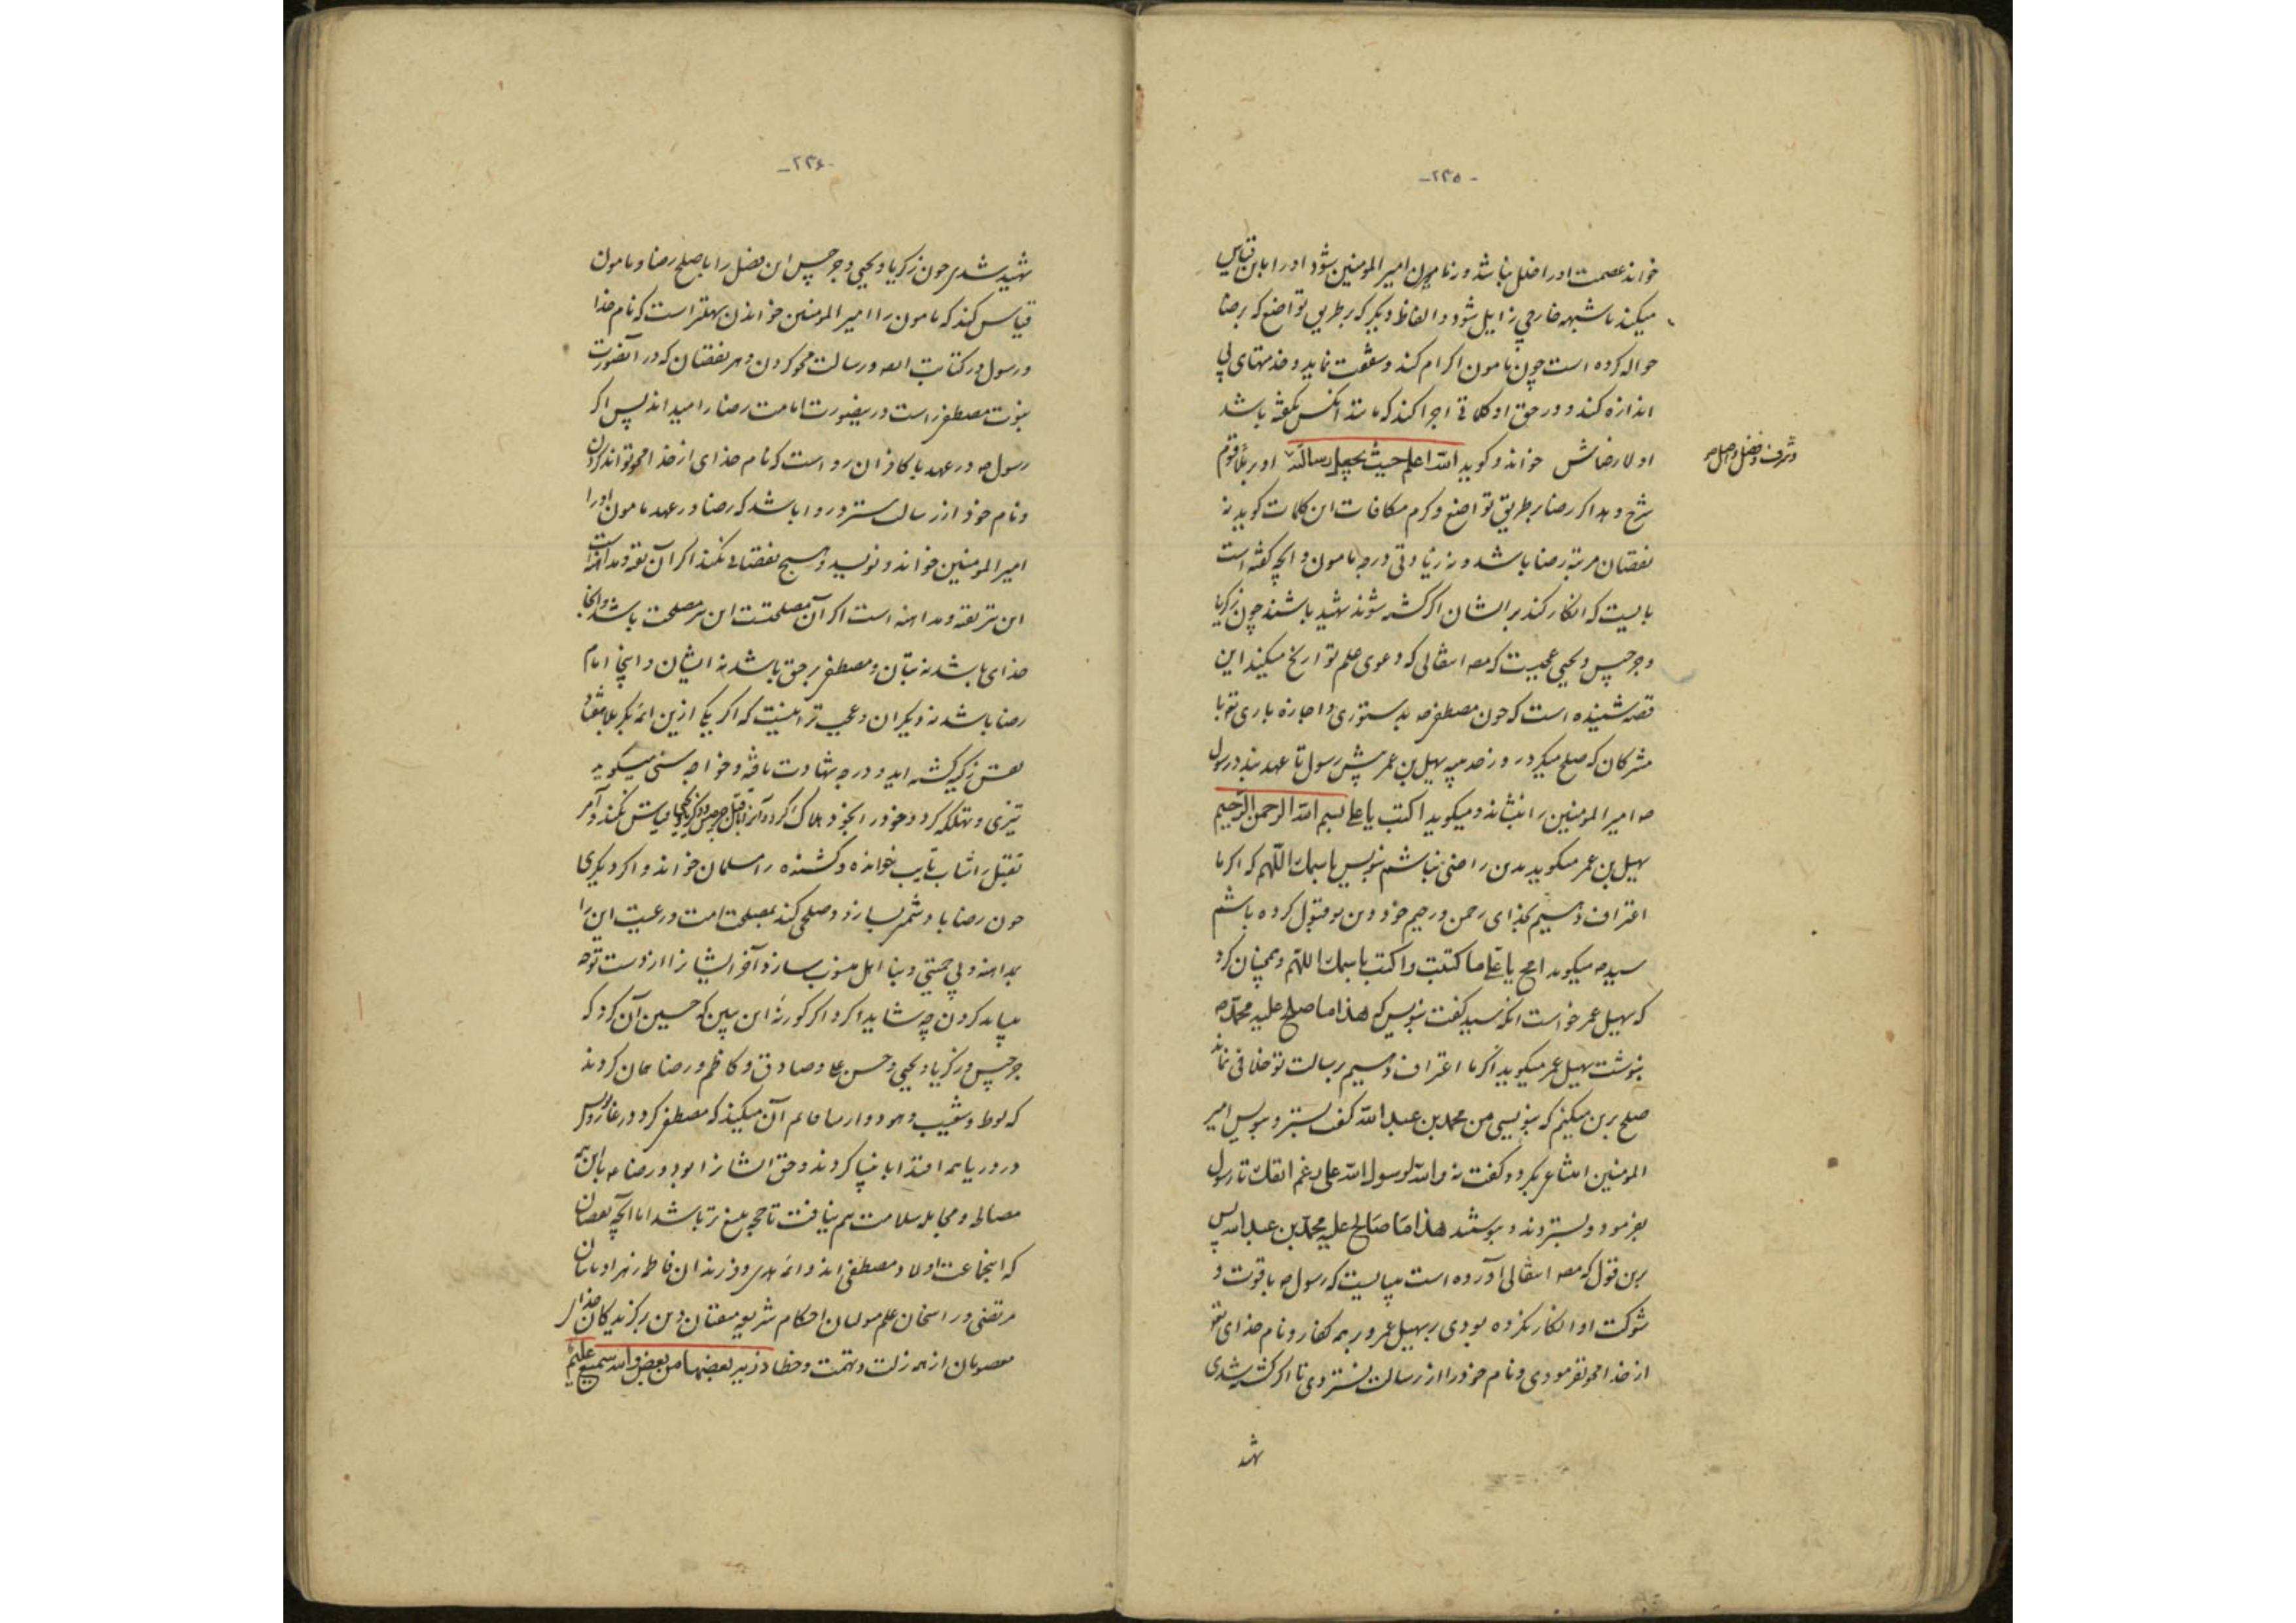 -۲۳۵-
خواند عصمت او را خلل نباشد و رنا مامون امیر المومنین شود او را باین قیاس
میکند تا شبهه خارجی زایل شود و الفاظ دیگر که بر طریق تواضع که برضا
حواله کرده است چون مامون اکرام کند و شفقت نماید و خدمتهای بی
اندازه کند و در حق او کلماتی اجرا کند که مانند آنکس نگفته باشد
اولا رضاش خواند و گوید الله اعلم حیث یجعل رسالته او بر ملاء قوم
و شرف و فضل و اصل
شرح دهد اگر رضا بر طریق تواضع و کرم مکافات این کلمات گوید نه
نقصان مرتبه رضا باشد و نه زیادتی درجه مامون و آنچه گفته است
بایست که انکار کند بر ایشان اگر کشته شوند شهید باشند چون زکریا
و جرجیس و یحیی عجبست که مصه انتقالی که دعوی علم تواریخ میکند این
قصه نشنیده است که چون مصطفی صه بدستوری و اجازه باری تع با
مشرکان که صلح میکرد روز حدیبیه سهیل بن عمر پیش رسول تا عهد بندد رسول
صه امیر المومنین را بنشاند و میگوید اکتب یا علی بسم الله الرحمن الرحیم
سهیل بن عمر میگوید بدین راضی نباشم بنویس باسمك اللهم که اگر ما
اعتراف دهیم بخدای رحمن و رحیم خود دین تو قبول کرده باشیم
سید صه میگوید امح یا علی ما کتبت و اکتب باسمك اللهم و همچنان کرد
که سهیل عمر خواست آنگه سید گفت بنویس که هذا ما صلح علیه محمد صه
بنوشت سهیل عمر میگوید اگر ما اعتراف دهیم برسالت تو خلافی نماند
صلح برین میکنم که بنویسی من محمد بن عبد الله گفت بستر و بنویس امیر
المومنین امتناع بکرد و گفت نه والله لرسول الله علی رغم انفك تا رسول
بفرمود و بستردند و بنوشتند هذا ما صالح علیه محمد بن عبد الله پس
برین قول که مصه انتقالی آورده است میبایست که رسول صه با قوت و
شوکت او انکار نکرده بودی بر سهیل عمر و بر همه کفار و نام خدای تع
از خدا محو نفرمودی و نام خود را از رسالت نستردی تا اگر کشته شدی
شهد
-۲۳۶-
شهید شدی چون زکریا و یحیی و جرجیس این فصل را با صلح رضا و مامون
قیاس کند که مامون را امیر المومنین خواندن سهلتر است که نام خدا
و رسول در کتابت الله و رسالت محو کردن و هر نقصان که در آنصورت
نبوت مصطفی راست درینصورت امامت رضا را میداند پس اگر
رسول صه در عهد با کافران روا است که نام خدای از خدا محو تواند کردن
و نام خود از رسالت بسترد روا باشد که رضا در عهد مامون او را
امیر المومنین خواند و نویسد و هیچ نقصانی نکند اگر آن تقیه و مداهنه است
این نیز تقیه و مداهنه است اگر آن مصلحتست این نیز مصلحت باشد و آنجا
خدای باشد نه بتان و مصطفی بر حق باشد نه ایشان و اینجا امام
رضا باشد نه دیگران و عجب تر اینست که اگر یکی ازین ائمه بکربلا بمقاد
نفس زکیه کشته آید و درجه شهادت یافته و خواجه سنی میگوید
تیزی و تهلکه کرد و خود را بخود هلاک کرد و آنرا با قتل جرجیس و زکریا و یحیی قیاس نکند و آمر
بقتل را شاب تایب خوانده و کشنده را مسلمان خواند و اگر دیگری
چون رضا با دشمن بسازد و صلحی کند بمصلحت امت و رعیت این را
بداهنه و بی حمیتی و بنا اهل منسوب سازد و آخر ایشانرا از دست تو چه
میباید کردن چه شاید کرد اگر کور نه این ببین که حسین آن کرد که
جرجیس و زکریا و یحیی و حسن علی و صادق و کاظم و رضا همان کردند
که لوط و شعیب و هود و ارمیا قایم آن میکند که مصطفی کرد در غار و یونس
در دریا همه اقتدا بانبیا کردند و حق ایشانرا بود و رضا عه با این همه
مصالحه و مجامله سلامت هم نیافت تا حجه بلیغ تر باشد اما آنچه نقصان
که اینجماعت اولاد مصطفی اند و ائمه هدی و فرزندان فاطمه زهرا و
مرتضی و راسخان علم و احکام شریعه مفتیان دین برگزیدگان خدا از
معصومان از همه زلت و تهمت و خطا ذریه بعضها من بعض والله سمیع علیم